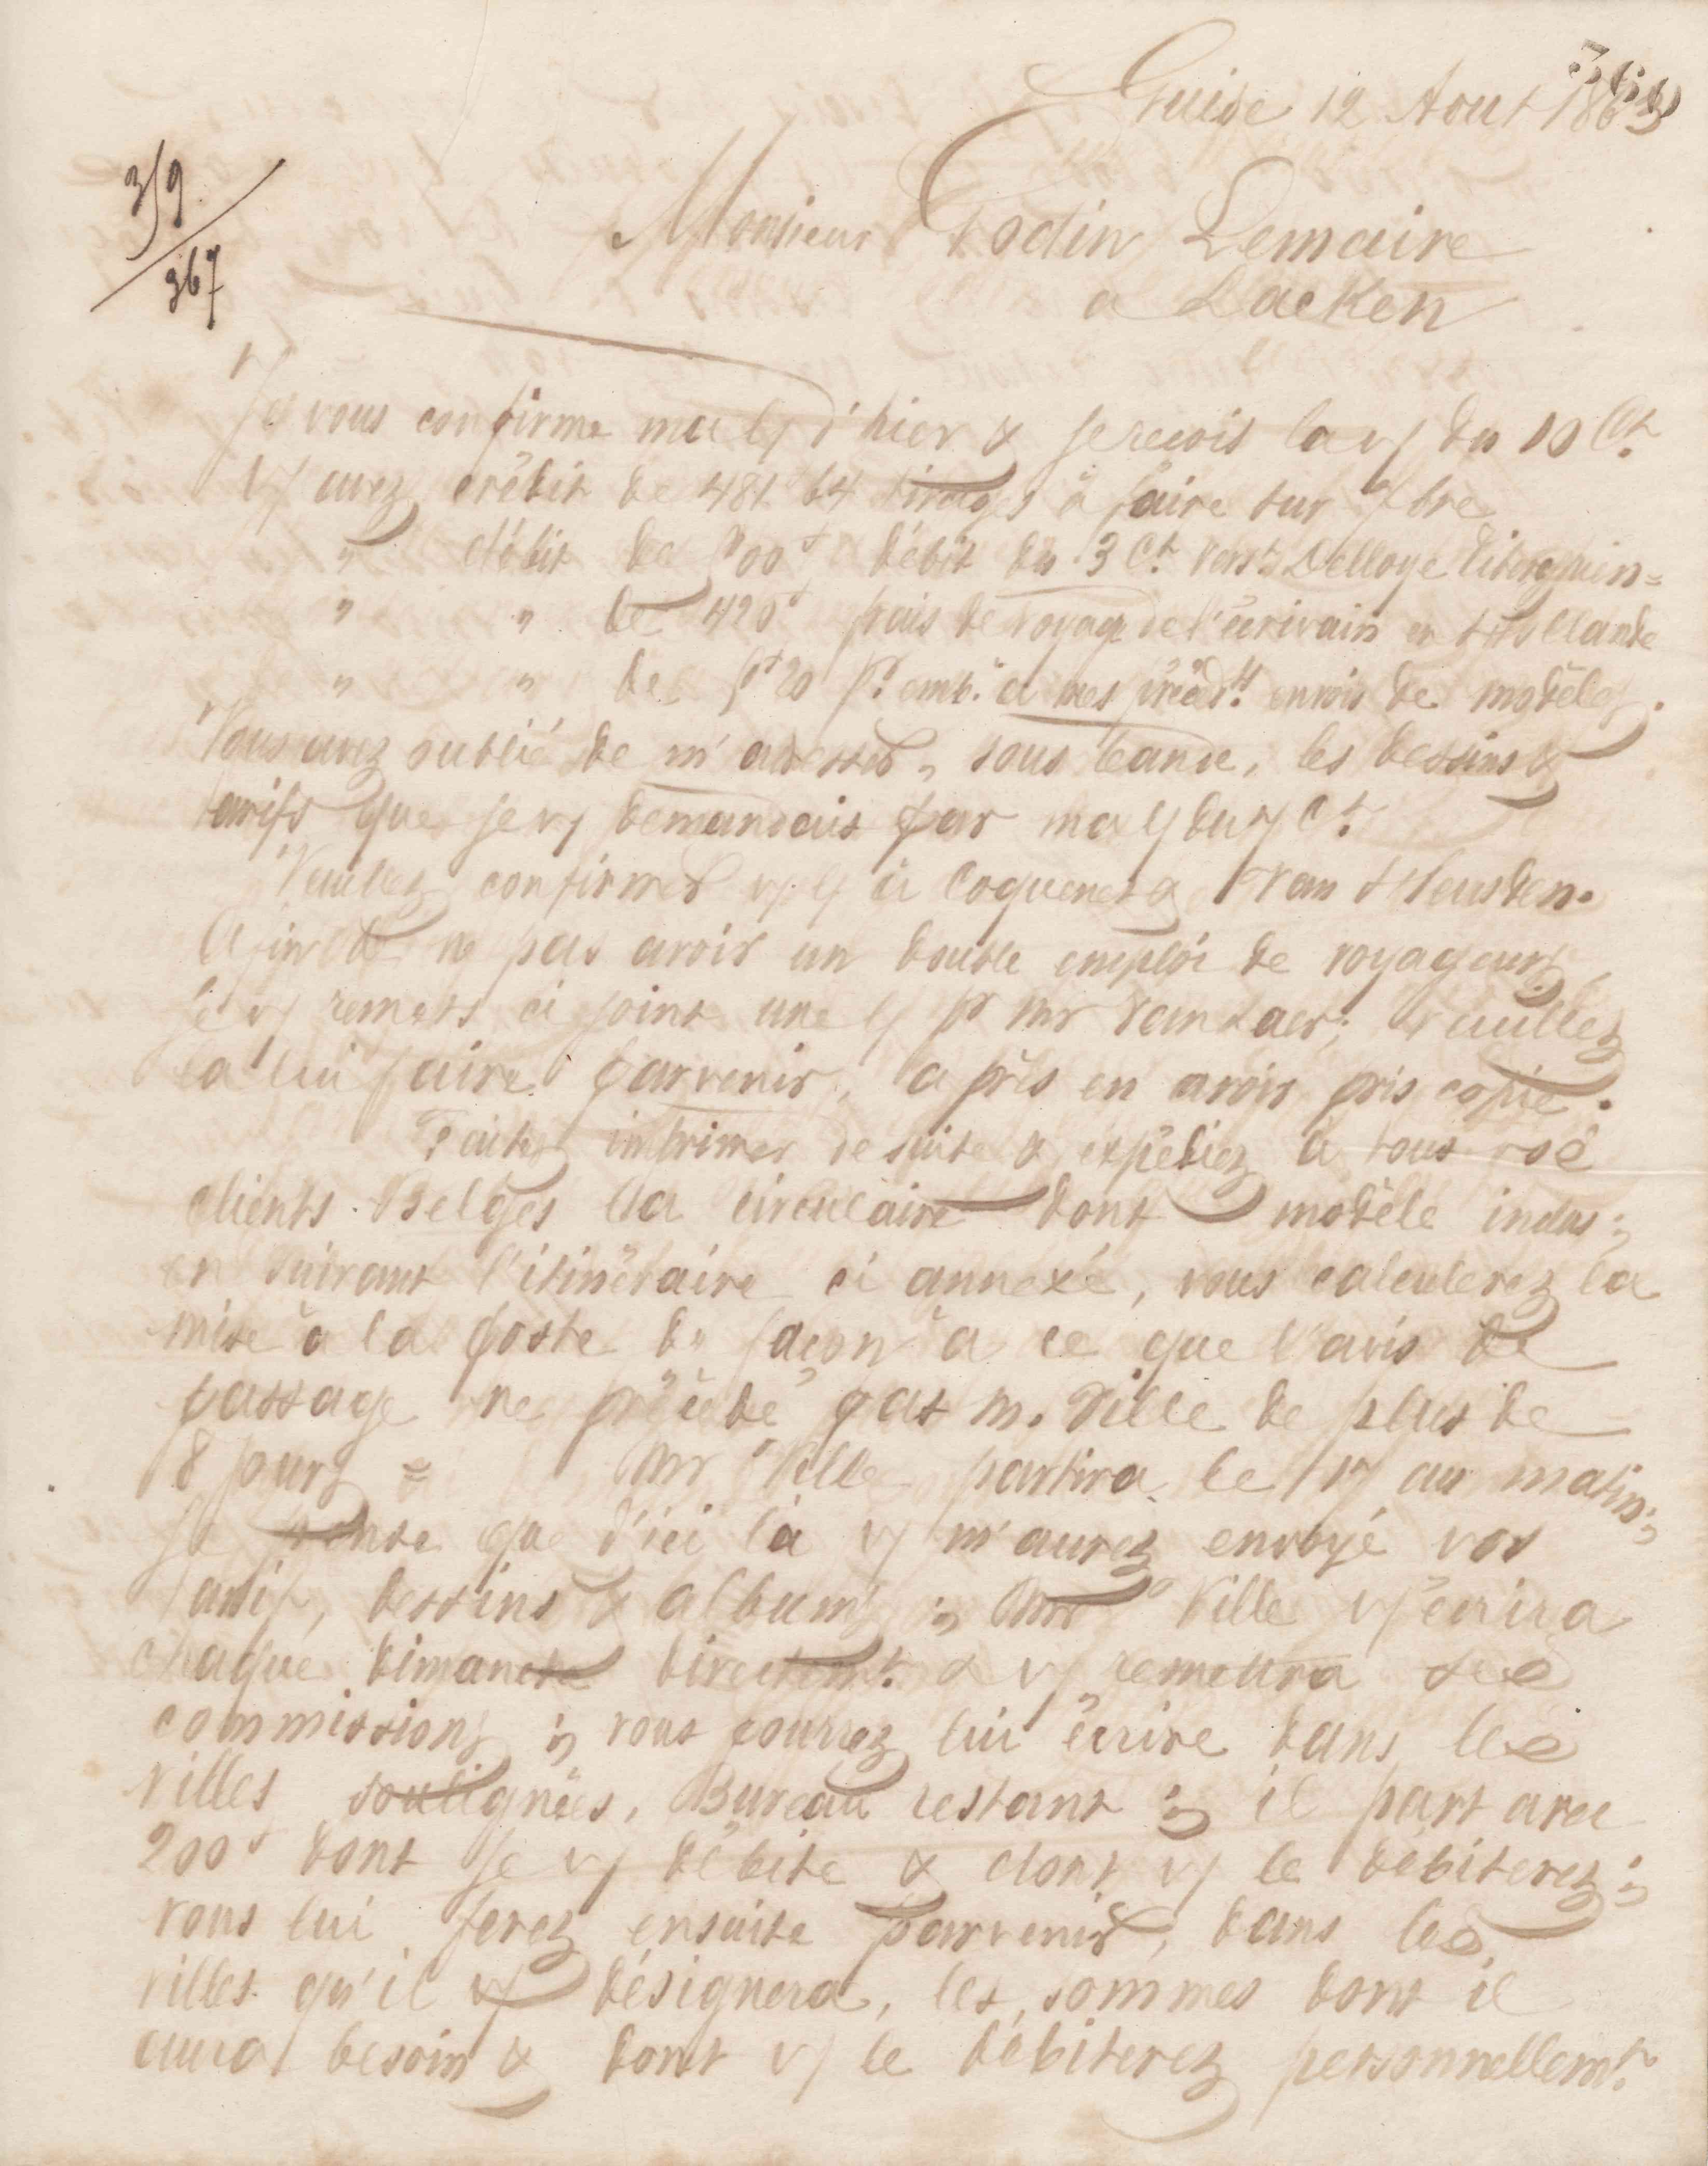 363
Guise 12 Aout 1863
359
367
Monsieur Godin Lemaire
a Laeken
Je vous confirme ma l/ d'hier & je recois la v/ du 10 Ct.
V/ avez crédit de 481.64 tirages à faire sur 7bre
" débit de 500f débit du 3 Ct. vers Delloye
" " de 420f frais de voyage de l'écrivain en Hollande
" " de emb. à mes précédts envois de modèles.
Vous avez oublié de m'adresser, sous bande, les dessins &
tarifs que je v/ demandais par ma l/ du 7 Ct.
Veuillez confirmer v/ l/ à Coquenet & Van Heusden.
Afin de ne pas avoir un double emploi de voyageurs,
je v/ remets ci joint une l/ pr Mr ; veuillez
la lui faire parvenir, après en avoir pris copie.
Faites imprimer de suite & expédiez à tous vos
clients Belges la circulaire dont modèle inclus ;
en suivant l'itinéraire ci annexé, vous calculerez la
mise à la poste de façon à ce que l'avis de
passage ne précède pas m. Ville de plus de
8 jours = Mr Ville partira le 17 au matin ;
je pense que d'ici là v/ m'aurez envoyé vos
tarifs, dessins & albums ; Mr Ville v/ écrira
chaque dimanche directemt. & v/ remettra ses
commissions ; vous pourrez lui écrire dans les
villes soulignées, Bureau restant ; il part avec
200f dont je v/ débite & dont v/ le débiterez ;
vous lui ferez ensuite parvenir, dans les
villes qu'il v/ désignera, les sommes dont il
aura besoin & dont v/ le débiterez personnellemt.